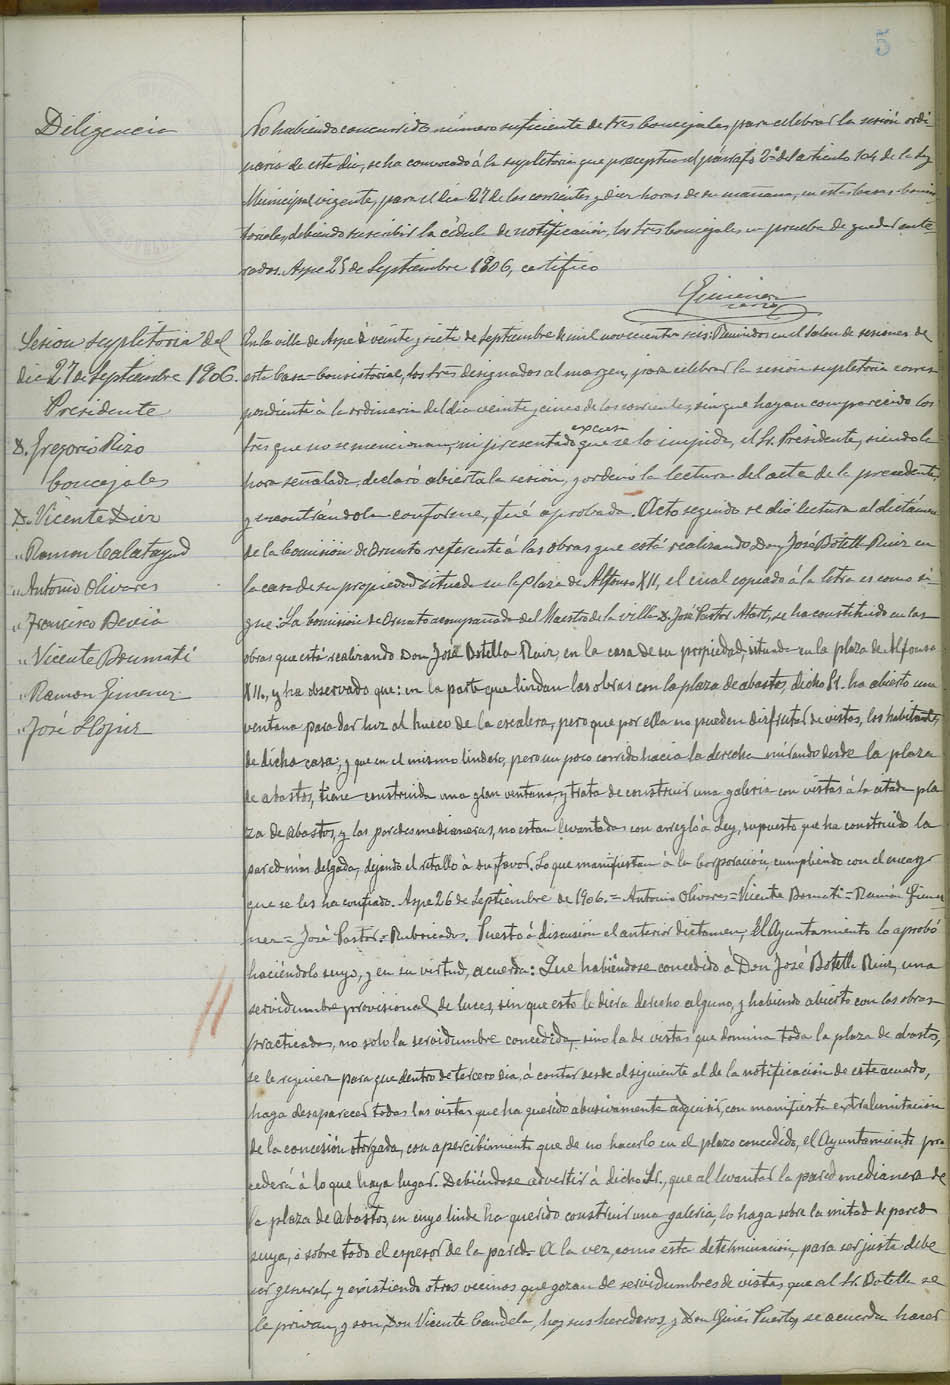 5
Diligencia
No habiendo concurrido número suficiente de Sres Concejales, para celebrar la sesión ordi
naria de este dia, se ha convocado á la supletoria que preceptua el párrafo 2º del articulo 104 de la Ley
Municipal vigente, para el dia 27 de los corrientes y diez horas de su mañana, en estas Casas Consis
toriales, debiendo suscribir la cédula de notificación, los Sres Concejales en prueba de quedar ente-
rados. Aspe 25 de Septiembre 1906, certifico
Gimenez
Sesion supletoria del
dia 27 de Septiembre 1906.
Presidente
D. Gregorio Rizo
Concejales
D. Vicente Diez
" Ramon Calatayud
" Antonio Olivares
" Francisco Devia
" Vicente Boumati
" Ramon Gimenez
" José
En la villa de Aspe á veinte y siete de Septiembre de mil novecientos seis: Reunidos en el Salon de sesiones de
esta Casa-Consistorial, los Sres designados al margen, para celebrar la sesión supletoria corres
pondiente á la ordinaria del dia veinte y cinco de los corrientes, sin que hayan comparecido los
Sres que no se mencionan, ni presentado excusa que se lo impida, el Sr. Presidente, siendo la
hora señalada, declaró abierta la sesión, y ordenó la lectura del acta de la precedente,
y encontrándola conforme, fué aprobada. Acto seguido se dió lectura al dictámen
de la Comisión de Ornato referente á las obras que está realizando Don José Botella Ruiz en
la casa de su propiedad situada en la plaza de Alfonso XII, el cual copiado á la letra es como si-
gue: La Comisión de Ornato acompañada del Maestro de la villa D. José Pastor, se ha constituido en las
obras que está realizando Don José Botella Ruiz, en la casa de su propiedad, situada en la plaza de Alfonso
XII, y ha observado que: en la parte que lindan las obras con la plaza de abastos, dicho Sr. ha abierto una
ventana para dar luz al hueco de la escalera, pero que por ella no pueden disfrutar de vistas, los habitantes
de dicha casa; y que en el mismo lindero, pero un poco corrido hacia la derecha mirando desde la plaza
de abastos, tiene construida una gran ventana, y trata de construir una galeria con vistas á la citada pla
za de abastos, y las paredes medianeras, no estan levantadas con arreglo á Ley, supuesto que ha construido la
pared más delgada, dejando el retallo á su favor. Lo que manifiestan á la Corporación, cumpliendo con el encargo
que se les ha confiado. Aspe 26 de Septiembre de 1906. = Antonio Olivares = Vicente Boumati = Ramón Gime-
nez = José Pastor = Rubricados. Puesto á discusion el anterior dictamen, El Ayuntamiento lo aprobó
haciéndolo suyo, y en su virtud, acuerda: Que habiéndose concedido á Don José Botella Ruiz, una
servidumbre provisional de luces, sin que esto le diera derecho alguno, y habiendo abierto con las obras
practicadas, no solo la servidumbre concedida, sino la de vistas que domina toda la plaza de abastos,
se le requiera para que dentro de tercero dia, á contar desde el siguiente al de la notificación de este acuerdo,
haga desaparecer todas las vistas que ha querido abusivamente adquirir, con manifiesta extralimitación
de la concesión otorgada, con apercibimiento que de no hacerlo en el plazo concedido, el Ayuntamiento pro
cederá á lo que haya lugar. Debiéndose advertir á dicho Sr., que al levantar la pared medianera de
la plaza de Abastos, en cuyo linde ha querido construir una galeria, lo haga sobre la mitad de pared
suya, ó sobre todo el espesor de la pared. A la vez, como esta determinación, para ser justa debe
ser general, y existiendo otros vecinos que gozan de servidumbres de vistas que al Sr. Botella se
le privan, y son Don Vicente Candela, hoy sus herederos, y Don Ginés Puerto, se acuerda hacer